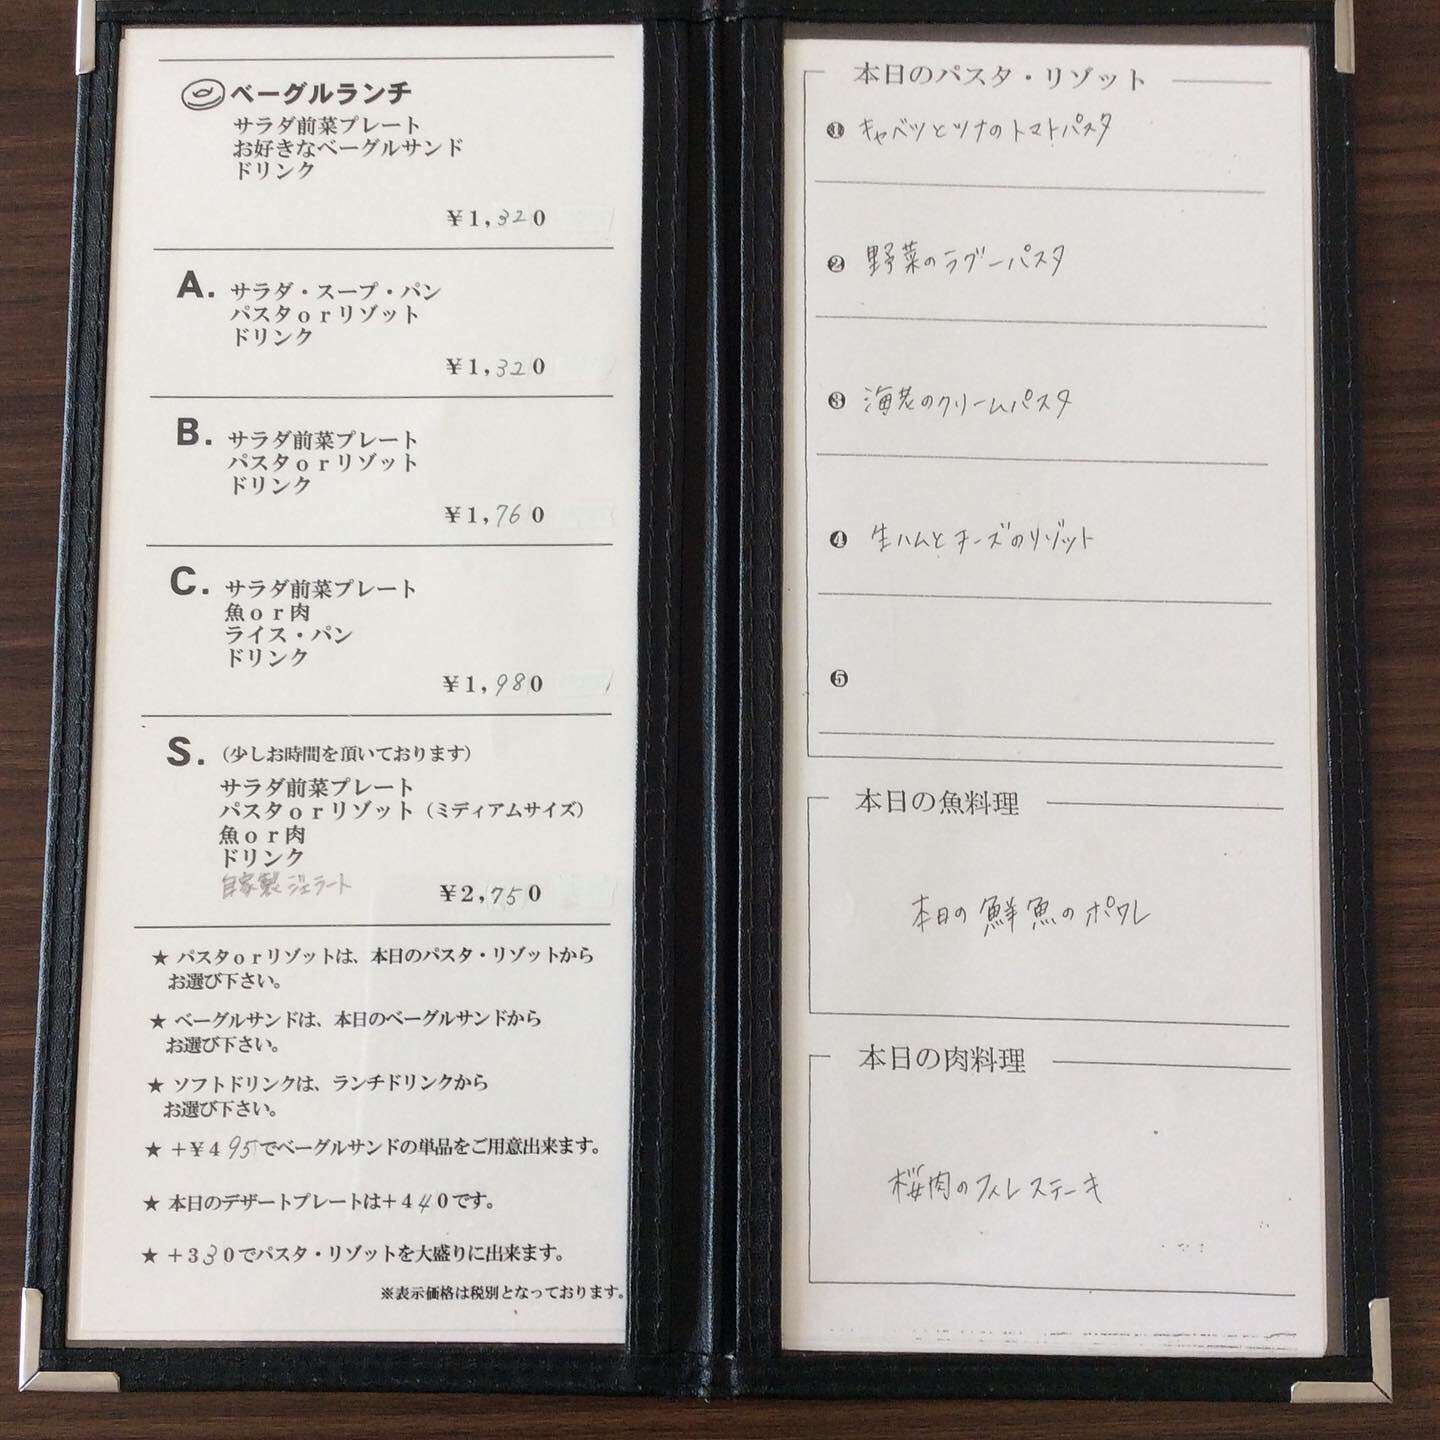 ベーグルランチ
サラダ前菜プレート
お好きなベーグルサンド
ドリンク
¥1,320
A. サラダ・スープ・パン
パスタorリゾット
ドリンク
¥1,320
B. サラダ前菜プレート
パスタorリゾット
ドリンク
¥1,760
C. サラダ前菜プレート
魚or肉
ライス・パン
ドリンク
¥1,980
S. (少しお時間を頂いております)
サラダ前菜プレート
パスタorリゾット(ミディアムサイズ)
魚or肉
ドリンク
自家製ジェラート
¥2,750
★ パスタorリゾットは、本日のパスタ・リゾットから
お選び下さい。
★ ベーグルサンドは、本日のベーグルサンドから
お選び下さい。
★ ソフトドリンクは、ランチドリンクから
お選び下さい。
★ +¥495でベーグルサンドの単品をご用意出来ます。
★ 本日のデザートプレートは+440です。
★ +330でパスタ・リゾットを大盛りに出来ます。
※表示価格は税別となっております。
本日のパスタ・リゾット
❶ キャベツとツナのトマトパスタ
❷ 野菜のラグーパスタ
❸ 海老のクリームパスタ
❹ 生ハムとチーズのリゾット
❺
本日の魚料理
本日の鮮魚のポワレ
本日の肉料理
桜肉のフィレステーキ